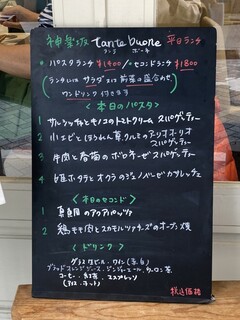 神楽坂 tante buone 平日ランチ
タンテ ボーネ
パスタランチ ¥1400 / セカンドランチ ¥1800
(ランチには サラダ または 前菜の盛合わせ
ワンドリンク 付きます)
<本日のパスタ>
1 サルシッチャとキノコのトマトクリーム スパゲッティー
2 小エビとほうれん草、クルミのアーリオ・オーリオ
スパゲッティー
3 牛肉と春菊のボロネーゼ スパゲッティー
4 姫ホタテとオクラのジェノベーゼ カサレッチェ
<本日のセコンド>
1 真鯛のアクアパッツァ
2 鶏モモ肉とスカモルツァチーズのオーブン焼
<ドリンク>
グラスワイン(赤,白)
ブラッドオレンジジュース、ジンジャーエール、ウーロン茶
コーヒー、紅茶、エスプレッソ
(アイス・ホット)
税込価格